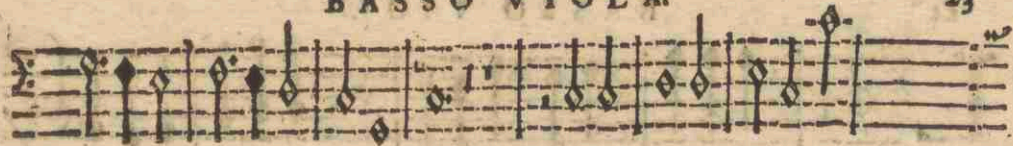 BASSO VIOLA.